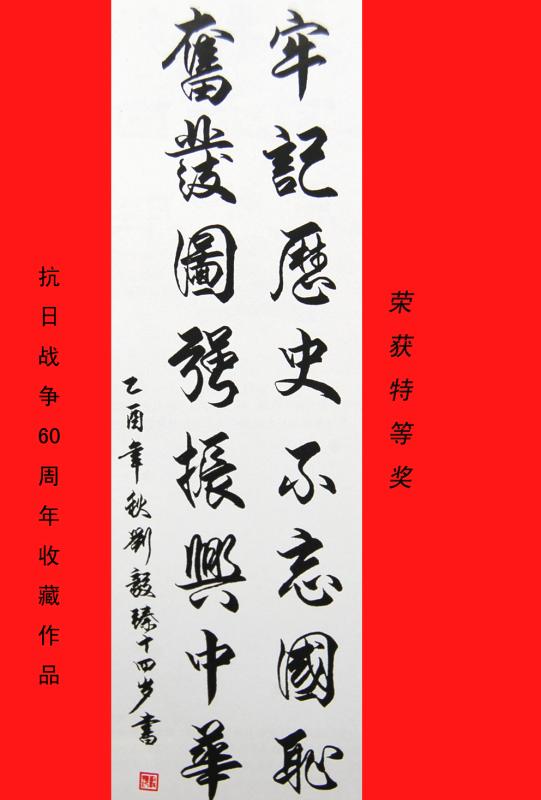 荣获特等奖
牢記歷史不忘國恥
奮發圖强振興中華
乙酉年秋劉毅臻十四岁書
抗日战争60周年收藏作品